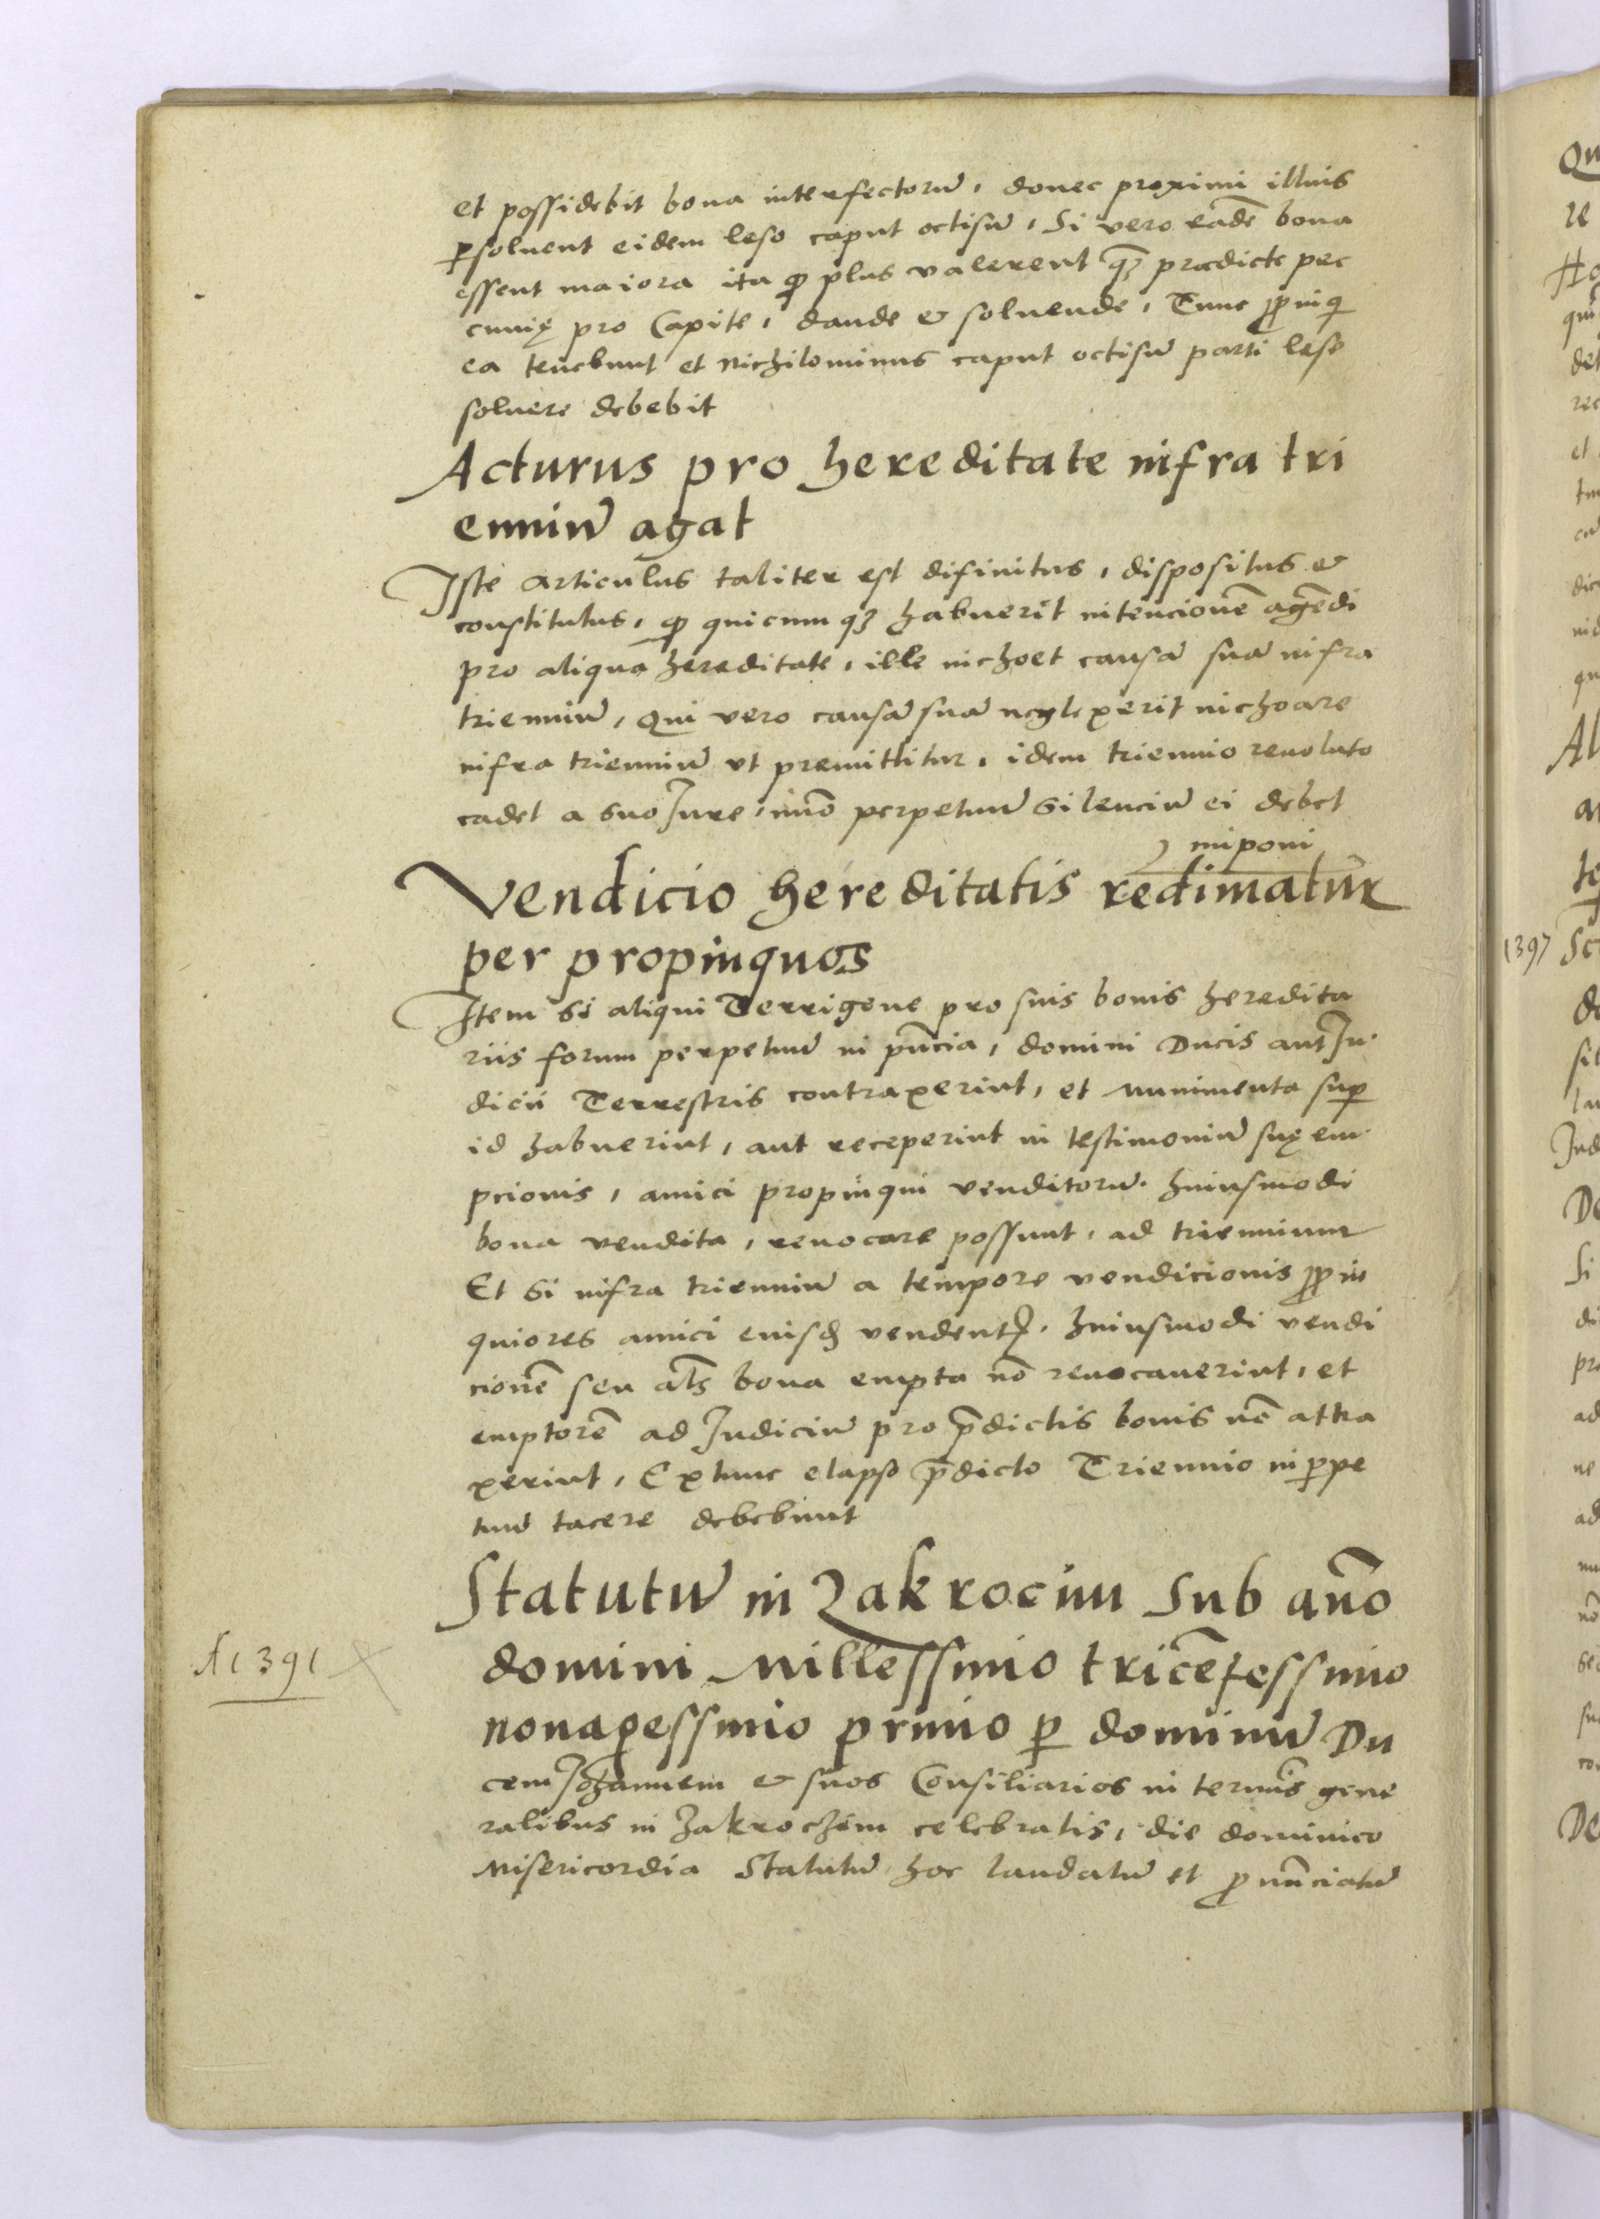 et possidebit bona interfectorū, donec proximi illius
ꝑsoluent eidem leso caput occisū, Si vero eadē bona
essent maiora ita ꝙ plus valerent qꝫ prædicte pec
cunię pro Capite, dande & soluende, Tunc ꝓinqͥ
ea tenebunt et nichilominus caput occisū parti lese
soluere debebit
Acturus pro hereditate infra tri
enniū agat
Iste articulus taliter est difinitus, dispositus &
constitutus, ꝙ quicunqꝫ habuerit intencionē agēdi
pro aliqua hereditate, ille inchoet causā suā infra
trienniū, Qui vero causā suā neglexerit inchoare
infra trienniū vt premittitur, idem triennio reuoluto
cadet a suo Iure, im̄o perpetuū silenciū ei debet
imponi
Vendicio hereditatis redimatur
per propinquos
Item si aliqui Terrigene pro suis bonis heredita
riis forum perpetuū in pn̄cia, domini Ducis aut Iu-
dicii Terrestris contraxerint, et munimenta suꝑ
id habuerint, aut receperint in testimoniū suę em-
pcionis, amici propinqui venditorū. huiusmodi
bona vendita, reuocare possunt, ad triennium
Et si infra trienniū a tempore vendicionis ꝓpin
quiores amici euisdē vendentꝭ. huiusmodi vendi
cionē seu al̄s bona empta nō reuocauerint, et
emptorē ad Iudiciū pro p̄dictis bonis nō attra
xerint, Extunc elapso p̄dicto Triennio in ꝑpe
tuū tacere debebunt
Statutū in Zakrocim Sub an̄o
domini Millessimo tricētessimo
nonagessimo primo ꝑ dominū Du
cem Iohannem & suos Consiliarios in termīs gene
ralibus in Zakroczim celebratis, die dominico
Misericordia Statutū hoc laudatū et ꝓnūciatū
A 1391
1397